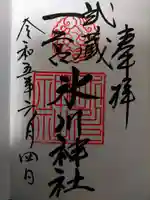 奉拝
武蔵
一宮
氷川神社
令和五年六月四日